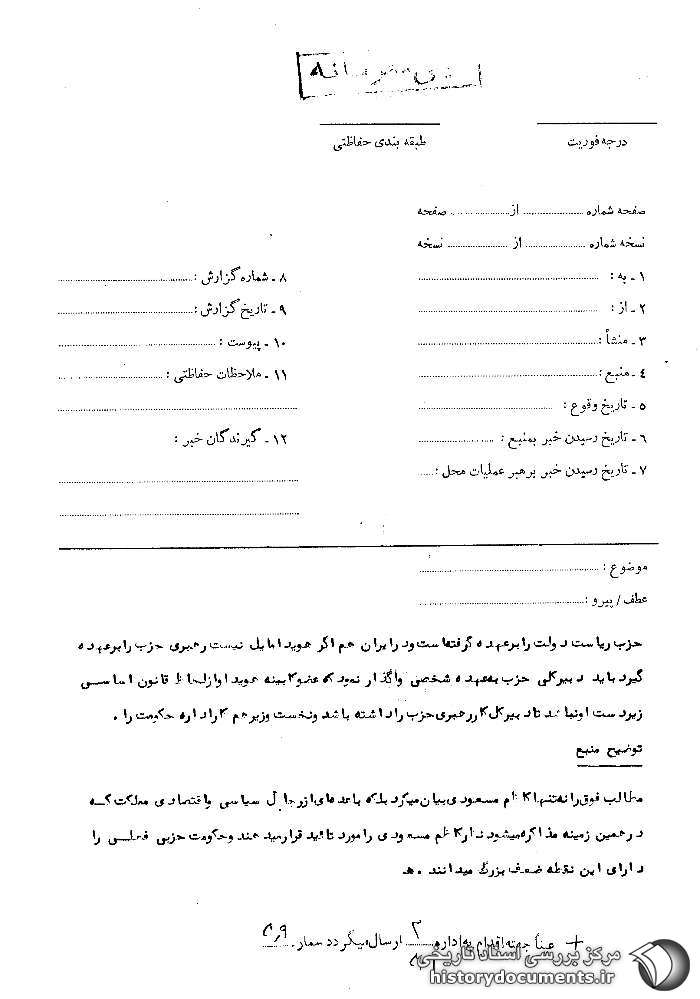 درجه فوریت
طبقه بندی حفاظتی
صفحه شماره از صفحه
نسخه شماره از نسخه
۱ - به :
۲ - از :
۳ - منشأ :
۴ - منبع :
۵ - تاریخ وقوع :
۶ - تاریخ رسیدن خبر بمنبع :
۷ - تاریخ رسیدن خبر برهبر عملیات محل :
۸ - شماره گزارش :
۹ - تاریخ گزارش :
۱۰ - پیوست :
۱۱ - ملاحظات حفاظتی :
۱۲ - گیرندگان خبر :
موضوع :
عطف / پیرو :
حزب ریاست دولت را برعهده گرفته است ودرایران هم اگر هویدا مایل نیست رهبری حزب را برعهده
گیرد باید دبیرکلی حزب بعهده شخصی واگذار نمود که عضو کابینه هویدا واز لحاظ قانون اساسی
زیردست او نباشد تا دبیرکل کار رهبری حزب را داشته باشد ونخست وزیر هم کار اداره حکومت را .
توضیح منبع
مطالب فوق را نه تنها کاظم مسعودی بیان میکرد بلکه با عده ای از رجال سیاسی واقتصادی مملکت که
درهمین زمینه مذاکره میشود نظر کاظم مسعودی را مورد تائید قرار میدهند وحکومت حزبی فعلی را
دارای این نقطه ضعف بزرگ میدانند . هـ
+ عیناً جهت اقدام به اداره ۳ ارسال میگردد
مرکز بررسی اسناد تاریخی
historydocuments.ir